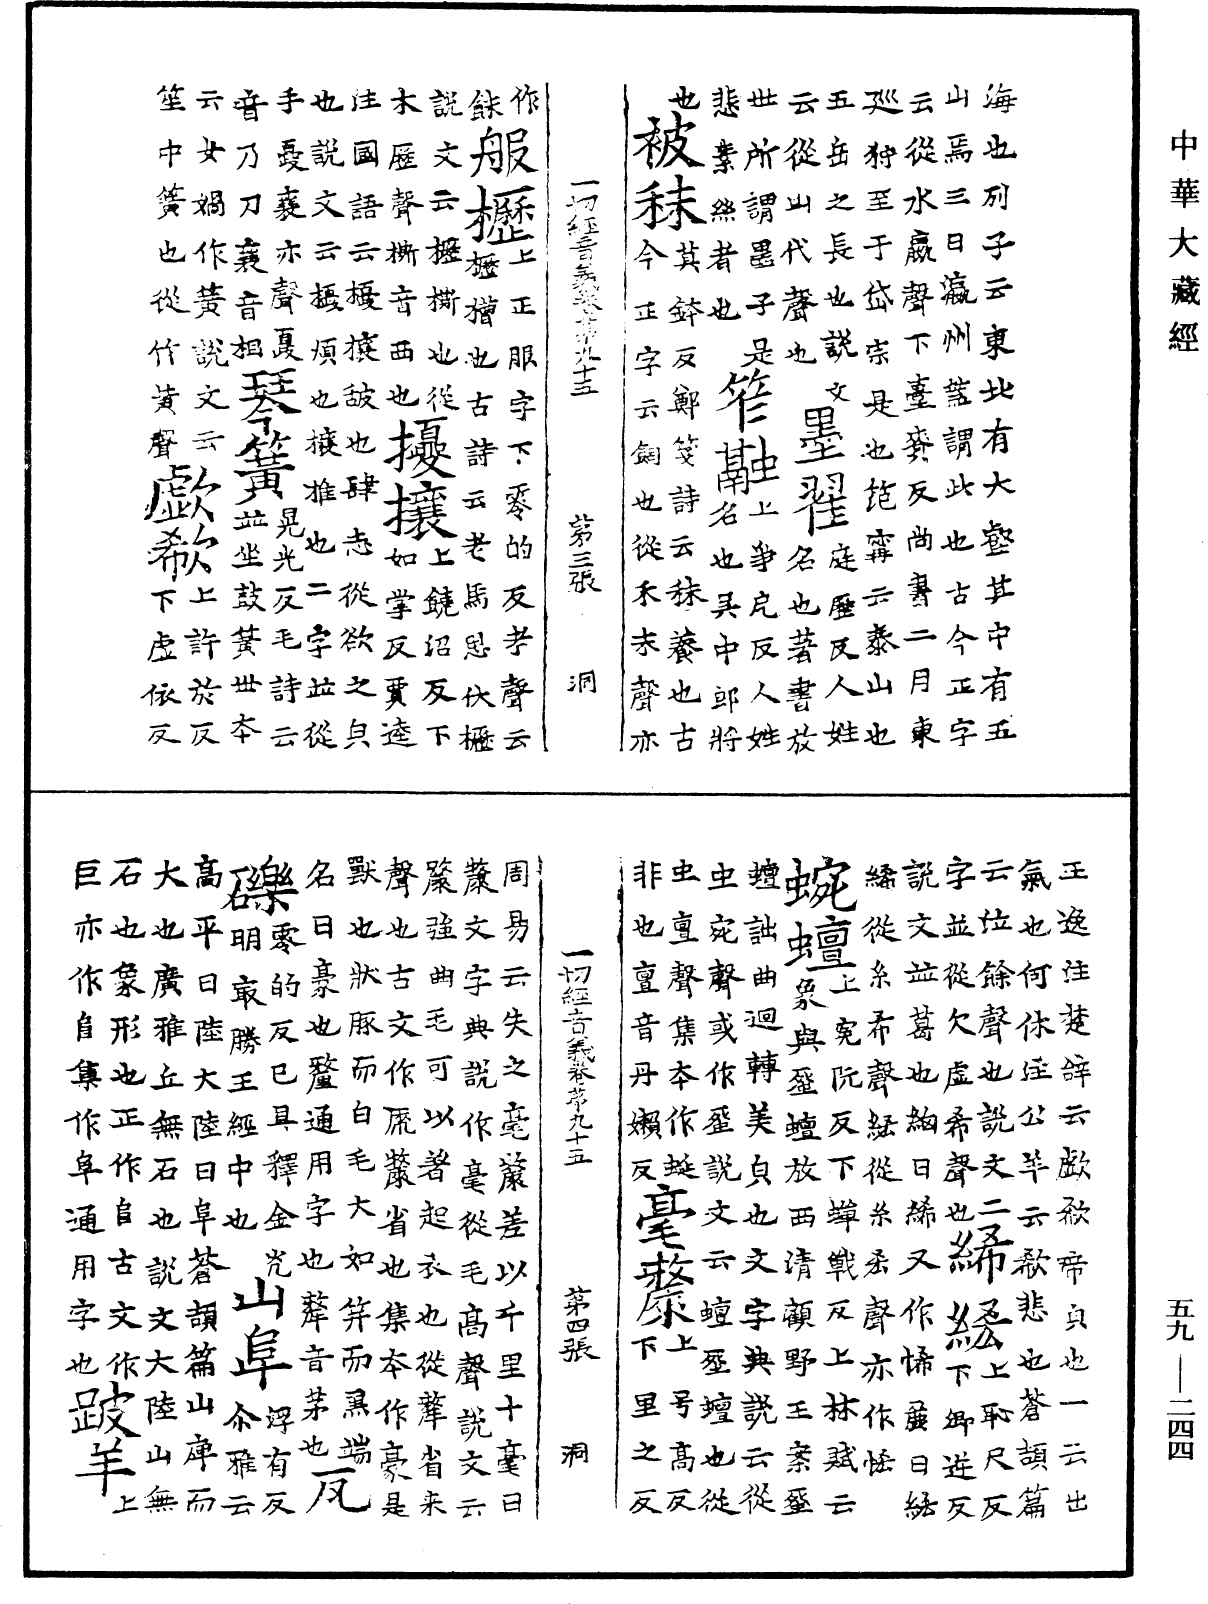 中華大藏經
海也列子云東北有大壑其中有五
山焉三曰瀛州蓋謂此也古今正字
云從水嬴聲下臺齊反尚書二月東
巡狩至于岱宗是也范甯云泰山也
五岳之長也說文
云從山代聲也
墨翟
庭歷反人姓
名也著書放
世所謂墨子是
悲素絲者也
笮融
上爭戹反人姓
名也吳中郎將
也
被秣
莫鉢反鄭箋詩云秣養也古
今正字云飼也從禾末聲亦
一切經音義卷第九十五 第三張 洞
作
䬴
服櫪
上正服字下零的反考聲云
櫪槽也古詩云老馬思伏櫪
說文云櫪㯕也從
木歷聲㯕音西也
擾攘
上饒沼反下
如掌反賈逵
注國語云擾攘皷也肆志從欲之皃
也說文云擾煩也攘推也二字並從
手憂襄亦聲憂
音乃刀襄音相
琴簧
晃光反毛詩云
並坐鼓簧世本
云女媧作簧說文云
笙中簧也從竹黃聲
歔欷
上許於反
下虛依反
王逸注楚辭云歔欷啼皃也一云出
氣也何休注公羊云欷悲也蒼頡篇
云泣餘聲也說文二
字並從欠虛希聲也
絺綌
上恥尺反
下卿逆反
說文並葛也絇曰絺又作悕麤曰綌
絺從糸希聲綌從糸㕁聲亦作㤲
蜿蟺
上寃阮反下蟬戰反上林賦云
象與蜿蟺放西清顧野王案蜿
蟺詘曲迴轉美皃也文字典說云從
虫宛聲或作蜑說文云蟺蜑蟺也從
虫亶聲集本作蜒
非也亶音丹嬾反
毫釐
上号高反
下里之反
周易云失之毫氂差以千里十毫曰
氂文字典說作毫從毛高聲說文云
氂強曲毛可以著起衣也從犛省來
聲也古文作庲氂省也集本作豪是
獸也狀豚而白毛大如笄而黑端
名曰豪也釐通用字也犛音茅也
瓦
礫
零的反已具釋金光
明最勝王經中也
山阜
浮有反
尒雅云
高平曰陸大陸曰阜蒼頡篇山庳而
大也廣雅丘無石也說文大陸山無
石也象形也正作𨸏古文作
巨亦作𨸏集作阜通用字也
跛羊
上
一切經音義卷第九十五 第四張 洞
五九—二四四